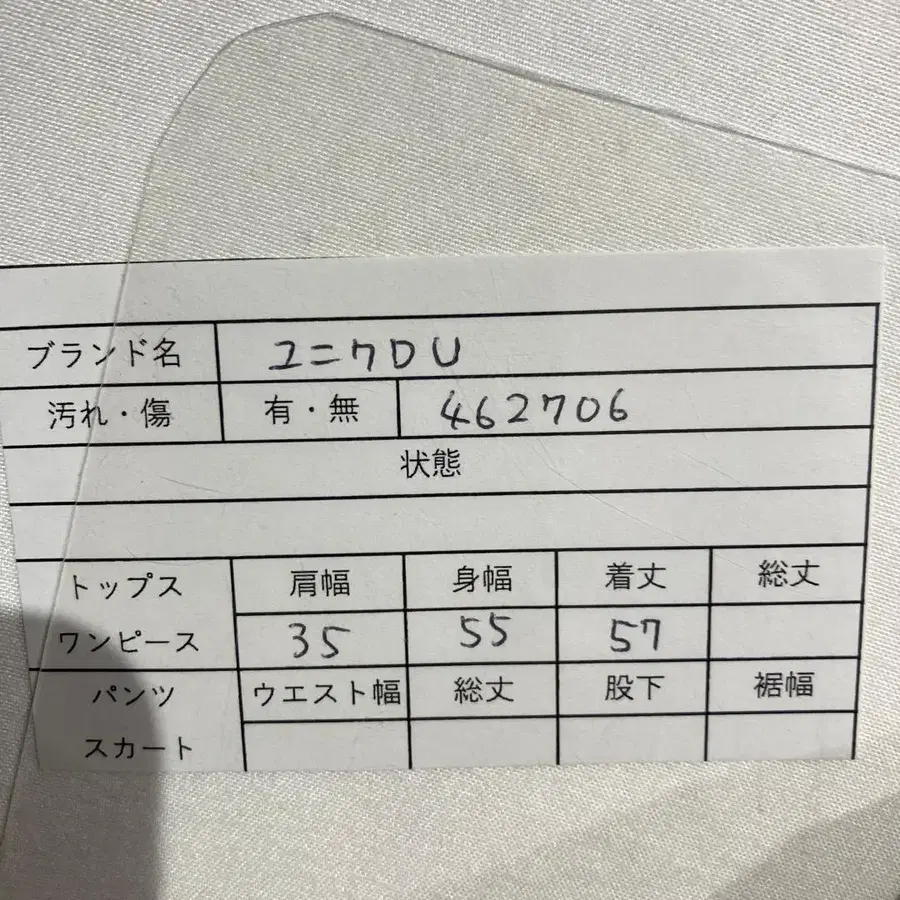 ブランド名 ユニクロU
汚れ・傷 有・無 462706
状態
トップス 肩幅 身幅 着丈 総丈
ワンピース 35 55 57
パンツ ウエスト幅 総丈 股下 裾幅
スカート